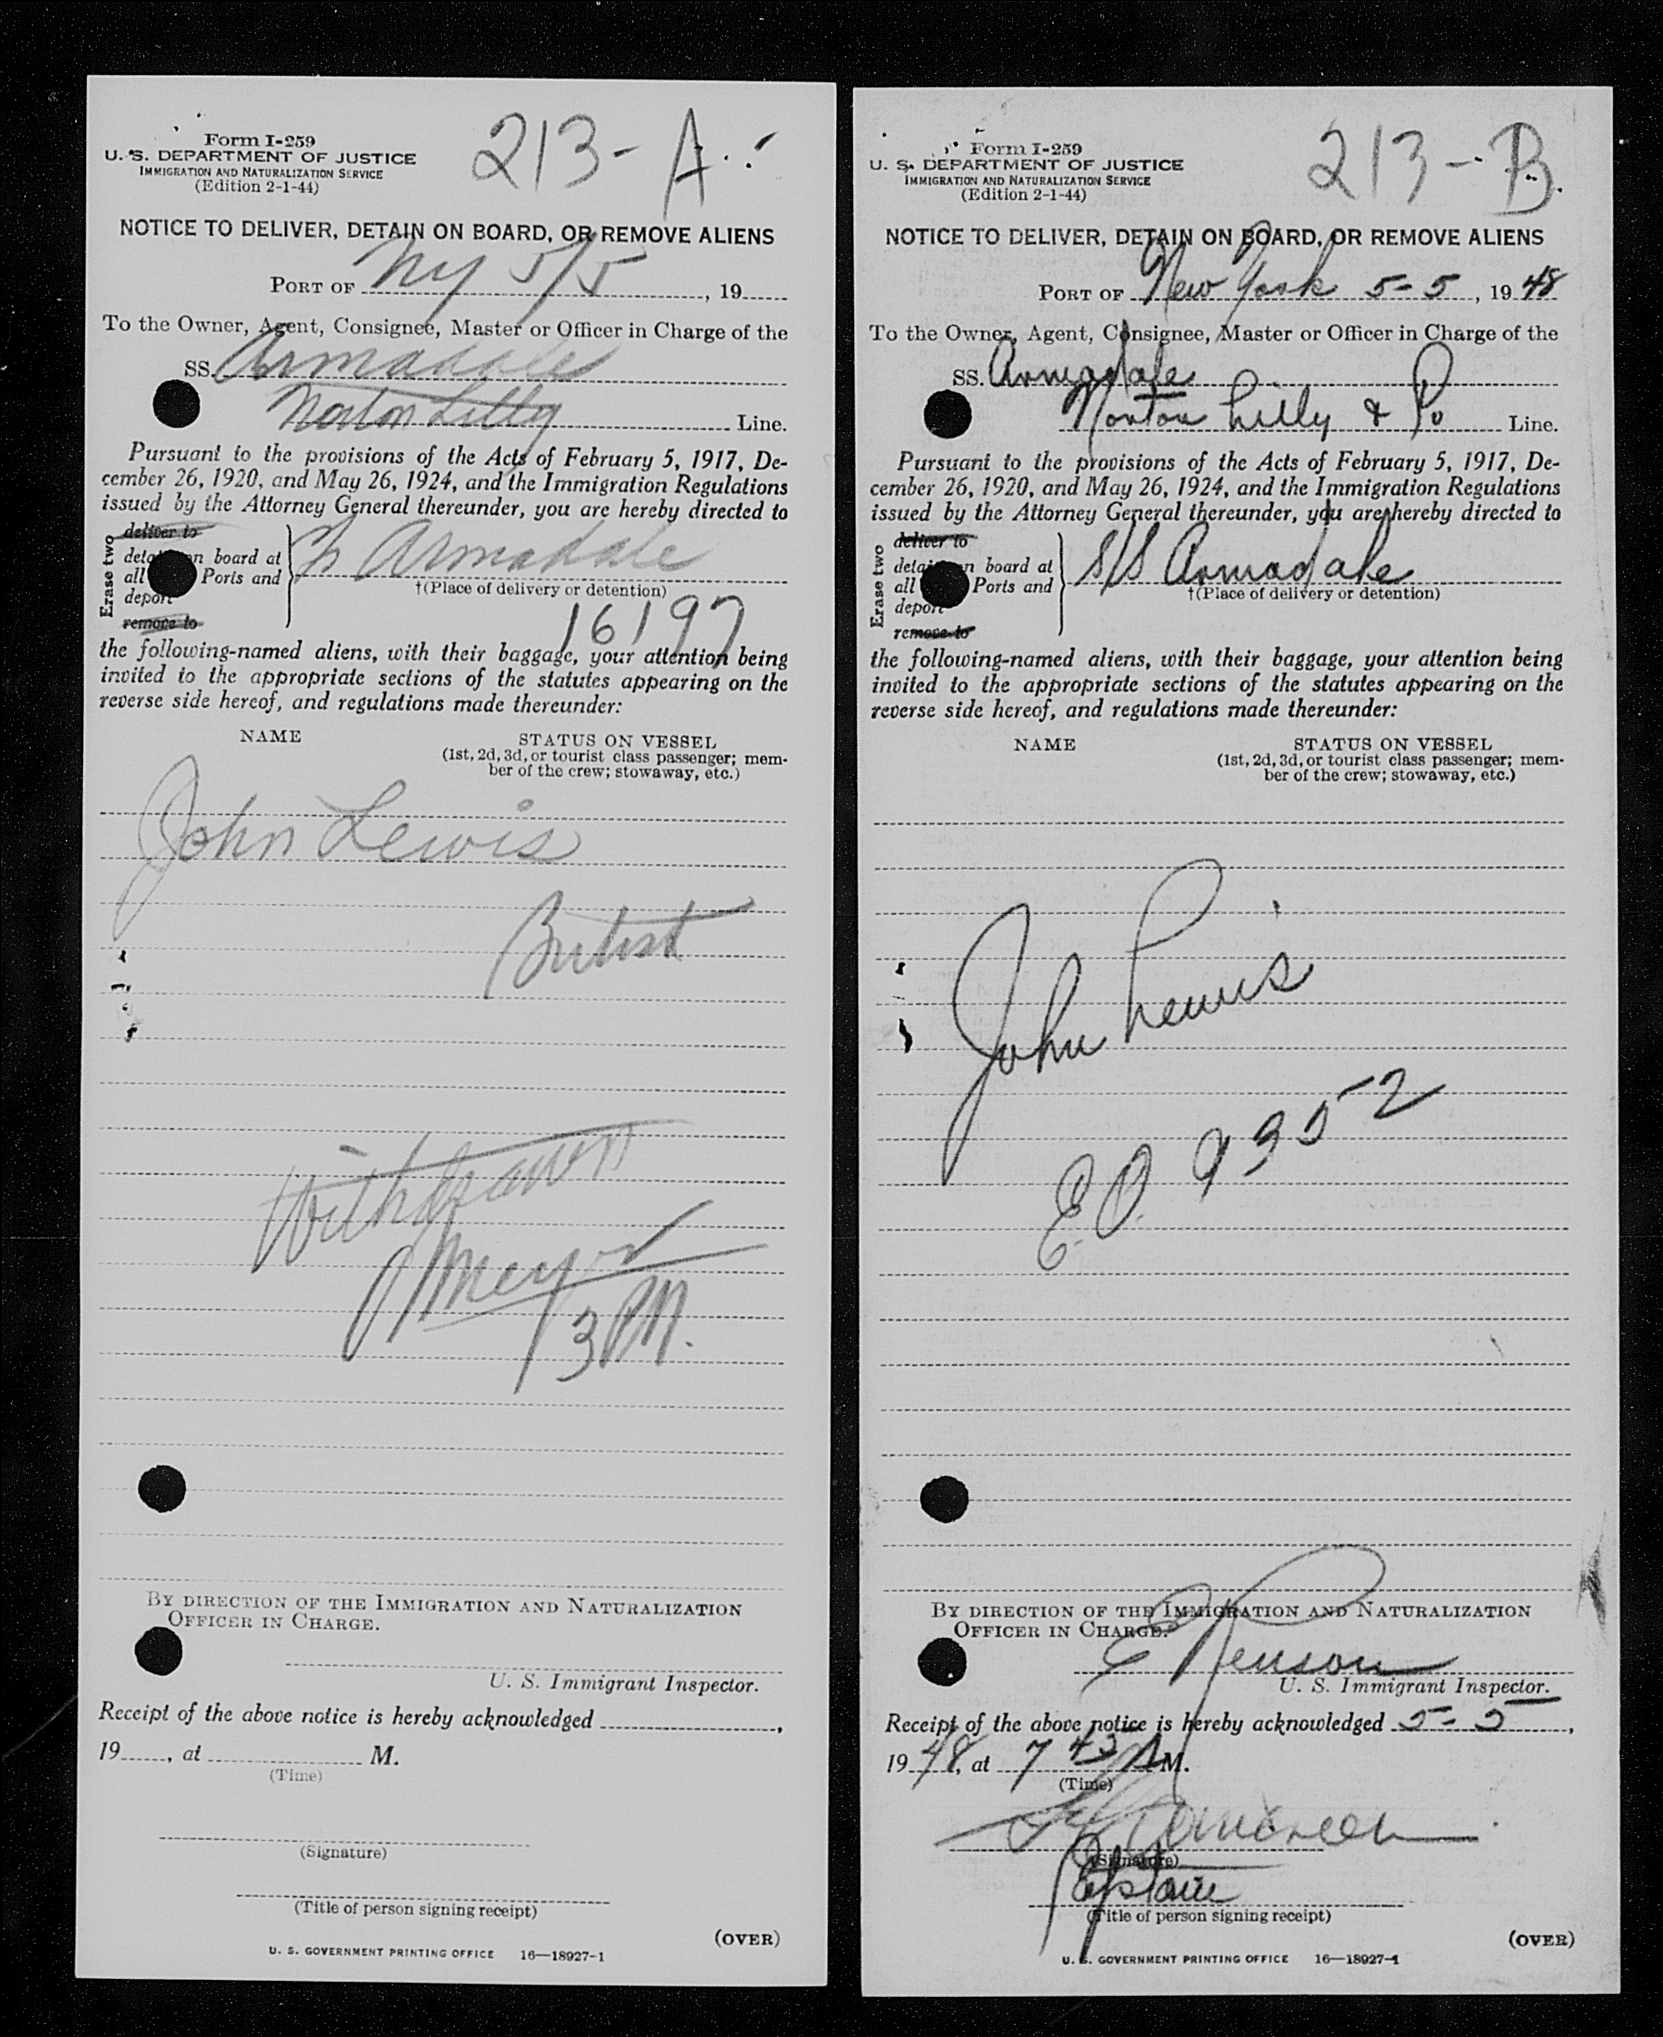 213-A
Form I-259
U. S. DEPARTMENT OF JUSTICE
IMMIGRATION AND NATURALIZATION SERVICE
(Edition 2-1-44)
NOTICE TO DELIVER, DETAIN ON BOARD, OR REMOVE ALIENS
PORT OF NY 5/5, 19
To the Owner, Agent, Consignee, Master or Officer in Charge of the
SS. Armadale
Norton Lilly Line.
Pursuant to the provisions of the Acts of February 5, 1917, De-
cember 26, 1920, and May 26, 1924, and the Immigration Regulations
issued by the Attorney General thereunder, you are hereby directed to
Erase two
deliver to
detain on board at
all Ports and
deport
remove to
Armadale
†(Place of delivery or detention)
16197
the following-named aliens, with their baggage, your attention being
invited to the appropriate sections of the statutes appearing on the
reverse side hereof, and regulations made thereunder:
NAME
STATUS ON VESSEL
(1st, 2d, 3d, or tourist class passenger; mem-
ber of the crew; stowaway, etc.)
John Lewis
British
Withdrawn
Meyer
3 PM.
BY DIRECTION OF THE IMMIGRATION AND NATURALIZATION
OFFICER IN CHARGE.
U. S. Immigrant Inspector.
Receipt of the above notice is hereby acknowledged ,
19 , at M.
(Time)
(Signature)
(Title of person signing receipt)
(OVER)
U. S. GOVERNMENT PRINTING OFFICE 16—18927-1
213-B.
Form I-259
U. S. DEPARTMENT OF JUSTICE
IMMIGRATION AND NATURALIZATION SERVICE
(Edition 2-1-44)
NOTICE TO DELIVER, DETAIN ON BOARD, OR REMOVE ALIENS
PORT OF New York 5-5, 1948
To the Owner, Agent, Consignee, Master or Officer in Charge of the
SS. Armadale
Norton Lilly & Co Line.
Pursuant to the provisions of the Acts of February 5, 1917, De-
cember 26, 1920, and May 26, 1924, and the Immigration Regulations
issued by the Attorney General thereunder, you are hereby directed to
Erase two
deliver to
detain on board at
all Ports and
deport
remove to
S/S Armadale
†(Place of delivery or detention)
the following-named aliens, with their baggage, your attention being
invited to the appropriate sections of the statutes appearing on the
reverse side hereof, and regulations made thereunder:
NAME
STATUS ON VESSEL
(1st, 2d, 3d, or tourist class passenger; mem-
ber of the crew; stowaway, etc.)
John Lewis
E.O. 9352
BY DIRECTION OF THE IMMIGRATION AND NATURALIZATION
OFFICER IN CHARGE.
E Renson
U. S. Immigrant Inspector.
Receipt of the above notice is hereby acknowledged 5-5,
1948, at 7 45 A M.
(Time)
(Signature)
Captain
(Title of person signing receipt)
(OVER)
U. S. GOVERNMENT PRINTING OFFICE 16—18927-1